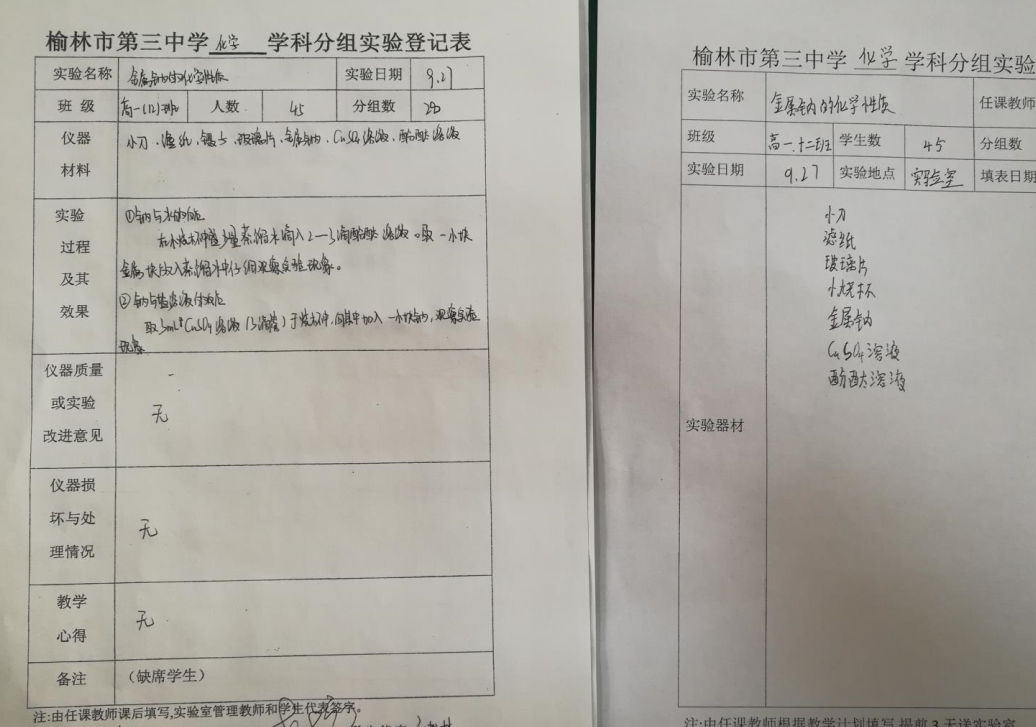 榆林市第三中学 化学 学科分组实验登记表
实验名称 金属钠的化学性质 实验日期 9.27
班 级 高一(12)班 人数 45 分组数
仪器
材料
小刀、滤纸、镊子、玻璃片、金属钠、CuSO4溶液、酚酞溶液
实验
过程
及其
效果
①钠与水的反应
在小烧杯中盛少量蒸馏水滴入2—3滴酚酞溶液。取一小块
金属块放入蒸馏水中仔细观察实验现象。
②钠与盐溶液的反应
取5mL CuSO4溶液 于烧杯中,向其中加入一小块钠,观察实验
现象
仪器质量
或实验
改进意见
无
仪器损
坏与处
理情况
无
教学
心得
无
备注 (缺席学生)
注:由任课教师课后填写,实验室管理教师和学生代表签字。
榆林市第三中学 化学 学科分组实验
实验名称 金属钠的化学性质 任课教师
班级 高一.十二班 学生数 45 分组数
实验日期 9.27 实验地点 实验室 填表日期
实验器材
小刀
滤纸
玻璃片
小烧杯
金属钠
CuSO4溶液
酚酞溶液
注:由任课教师根据教学计划填写,提前3天送实验室